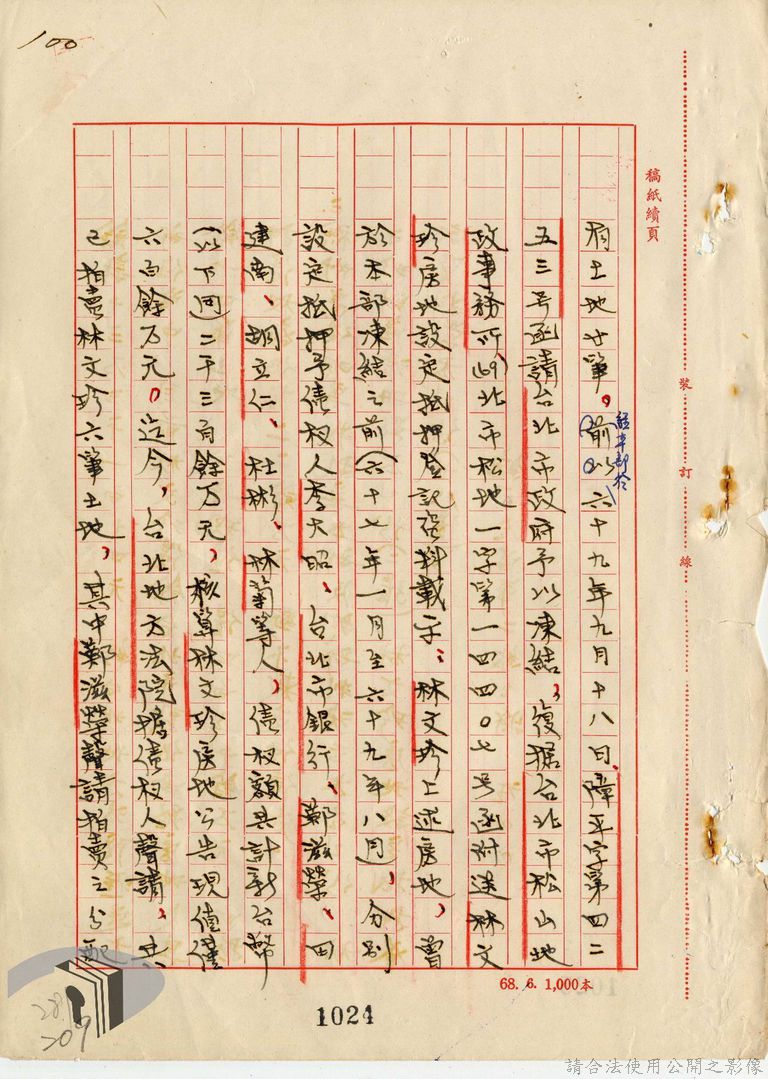 100
稿紙續頁
裝訂線
有土地廿筆。前以六十九年九月十八日障平字第四二
經本部於
五三号函請台北市政府予以凍結,復据台北市松山地
政事務所(69)北市松地一字第一四四〇七号函附送林文
珍房地設定抵押登記資料載示:林文珍上述房地,曾
於本部凍結之前(六十七年一月至六十九年八月),分別
設定抵押予債权人李大昭、台北市銀行、鄭滋榮、田
建南、胡立仁、杜彬、林菊等人,債权額共計新台幣
(以下同)二千三百餘万元,核算林文珍房地公告現值僅
六百餘万元。迄今,台北地方法院據債权人聲請,共
已拍賣林文珍六筆土地,其中鄭滋榮聲請拍賣之分配
68. 6. 1,000本
1024
28
209
請合法使用公開之影像